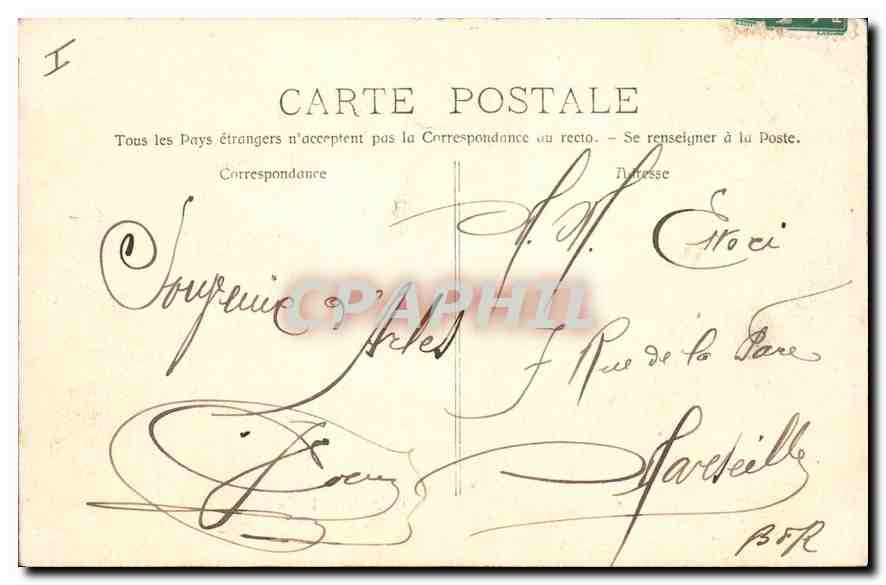 I
CARTE POSTALE
Tous les Pays étrangers n'acceptent pas la Correspondance au recto. – Se renseigner à la Poste.
Correspondance
Adresse
Souvenir d'Arles
M. M.
7 Rue de la
Marseille
CPAPHIL